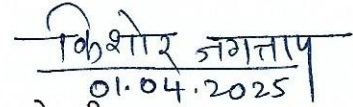 किशोर जगताप
01.04.2025